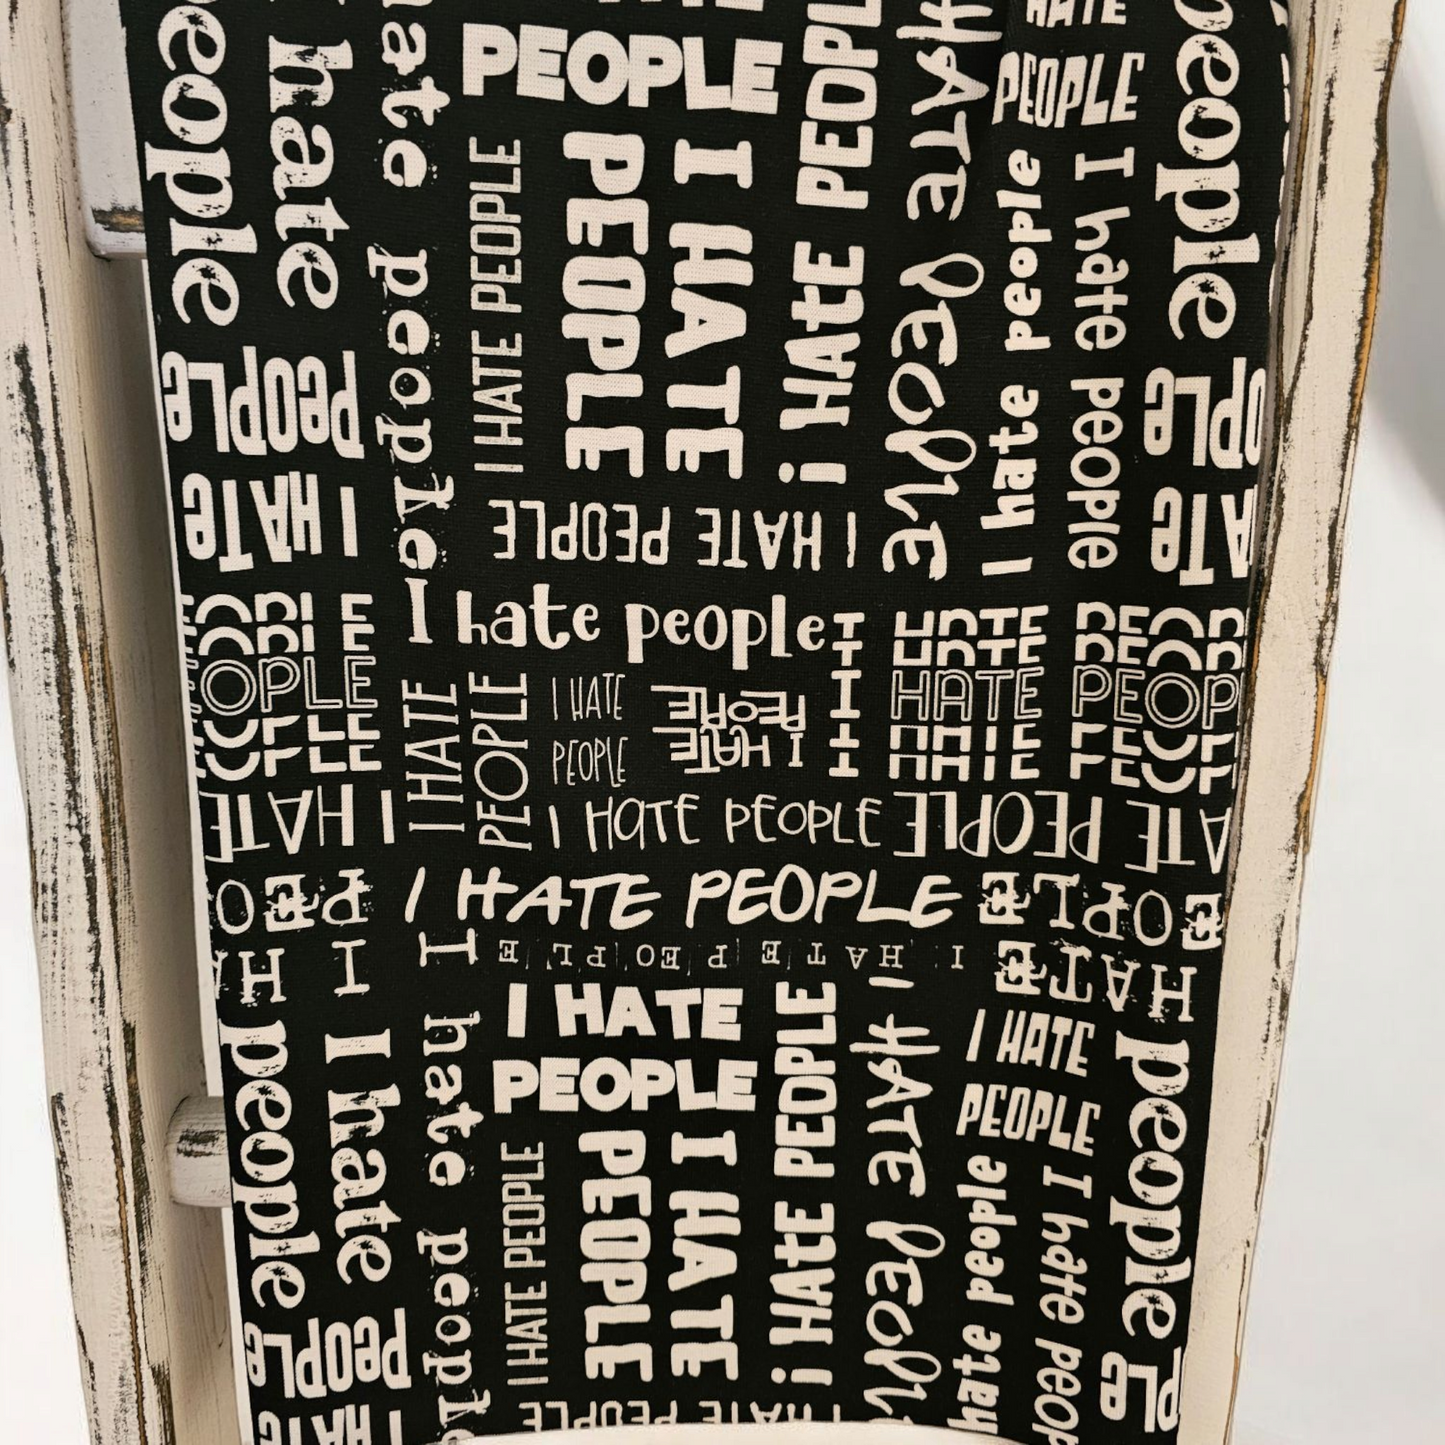 people
I hate
hate people
PEOPLE
I HATE PEOPLE
PEOPLE
I HATE
PEOPLE
I HATE PEOPLE
I HATE PEOPLE
HATE
PEOPLE
I hate people
I hate people
people
PEOPLE
I HATe
I HATE PEOPLE
I hate people
OPLE
I HATE PEOPL
I HATE
PEOPLE
I HATE
PEOPLE
I HATE
PEOPLE
I HATE
I HATE PEOPLE
ATE PEOPLE
I HATE PEOPLE
I HATE PEOPLE
HATE
people
I hate
I hate people
I HATE
PEOPLE
I HATE PEOPLE
I HATE
PEOPLE
I HATE PEOPLE
I HATE PEOPLE
I HATE
PEOPLE
hate people
I hate people
people
PEOPLE
I HATE
I HATE PEOPLE